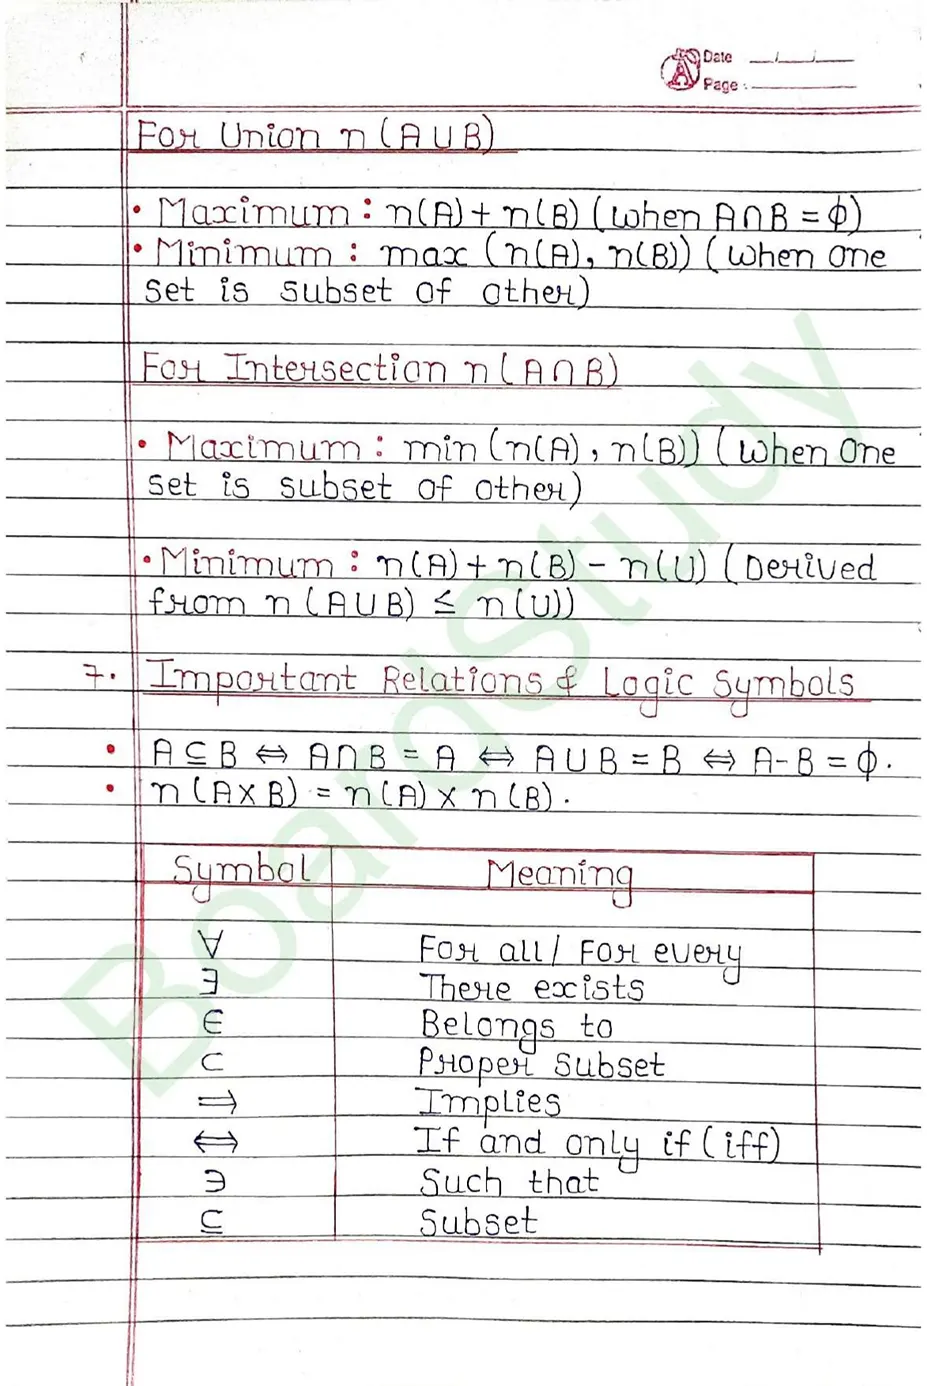 Date __/__/__
Page :
For Union n (A ∪ B)
• Maximum : n(A) + n(B) (when A∩B = ϕ)
• Minimum : max (n(A), n(B)) (when one
set is subset of other)
For Intersection n (A ∩ B)
• Maximum : min (n(A), n(B)) (when one
set is subset of other)
• Minimum : n(A) + n(B) - n(U) (Derived
from n (A ∪ B) ≤ n(U))
7. Important Relations & Logic Symbols
• A ⊆ B ⇔ A ∩ B = A ⇔ A ∪ B = B ⇔ A - B = ϕ.
• n (A × B) = n(A) × n(B).
Symbol Meaning
∀ For all / For every
∃ There exists
∈ Belongs to
⊂ Proper subset
⇒ Implies
⇔ If and only if (iff)
∋ Such that
⊆ Subset
BoardStudy